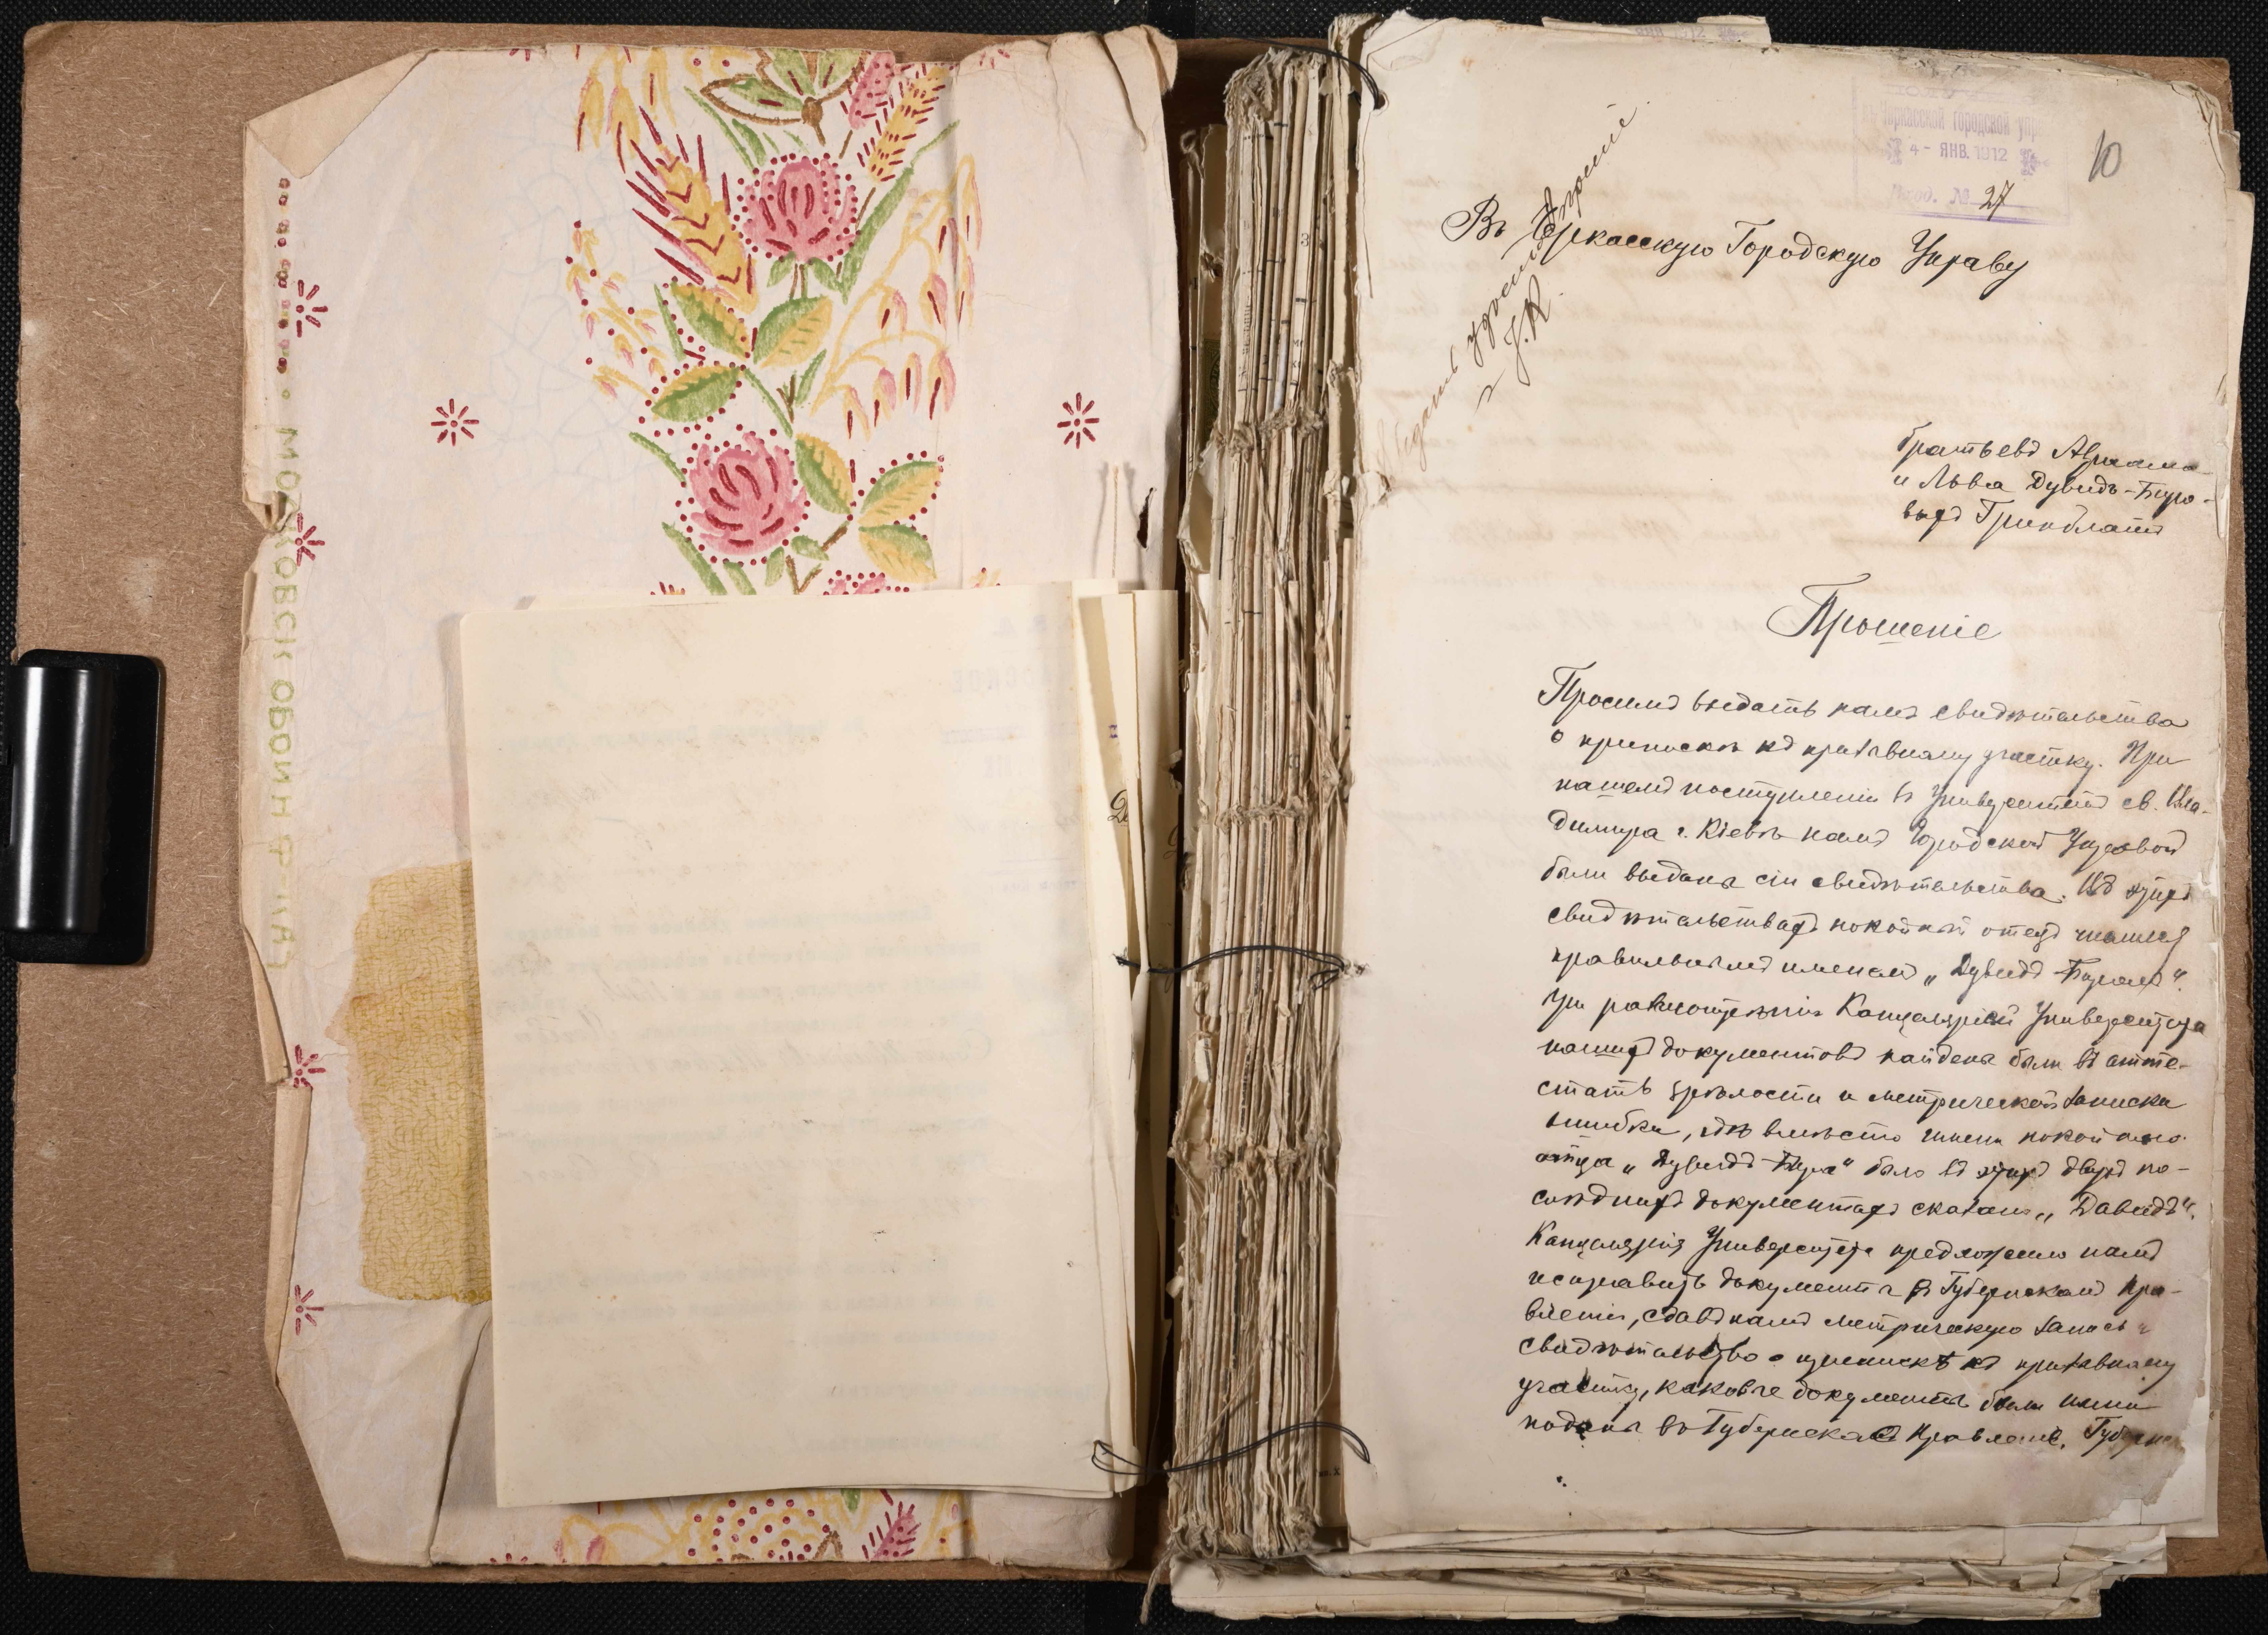 въ Черкасской городской упр
4 - ЯНВ. 1912
Вход. № 27
10
Въ Черкасскую Городскую Управу
братьевъ Абрама
и Льва Дувидъ-Беро-
выхъ Гринблатъ
Прошеніе
Просимъ выдать намъ свидѣтельства
о припискѣ къ призывному участку. При
нашемъ поступленіи въ Университетъ св. Вла-
димира г. Кіевѣ намъ Городской Управой
были выданы сіи свидѣтельства. Въ этихъ
свидѣтельствахъ покойный отецъ нашъ
правильнымъ именемъ „Дувидъ-Беромъ“.
При разсмотрѣніи Канцеляріей Университета
нашихъ документовъ найдены были въ атте-
статѣ зрѣлости и метрической записи
ошибки, гдѣ вмѣсто имени покойнаго
отца „Дувидъ-Бера“ было въ этихъ двухъ по-
слѣднихъ документахъ сказано „Давидъ“.
Канцелярія Университета предложила намъ
исправить документы въ Губернскомъ Пра-
вленіи, сдавъ намъ метрическую запись и
свидѣтельство о припискѣ къ призывному
участку, каковые документы были нами
поданы въ Губернское Правленіе.